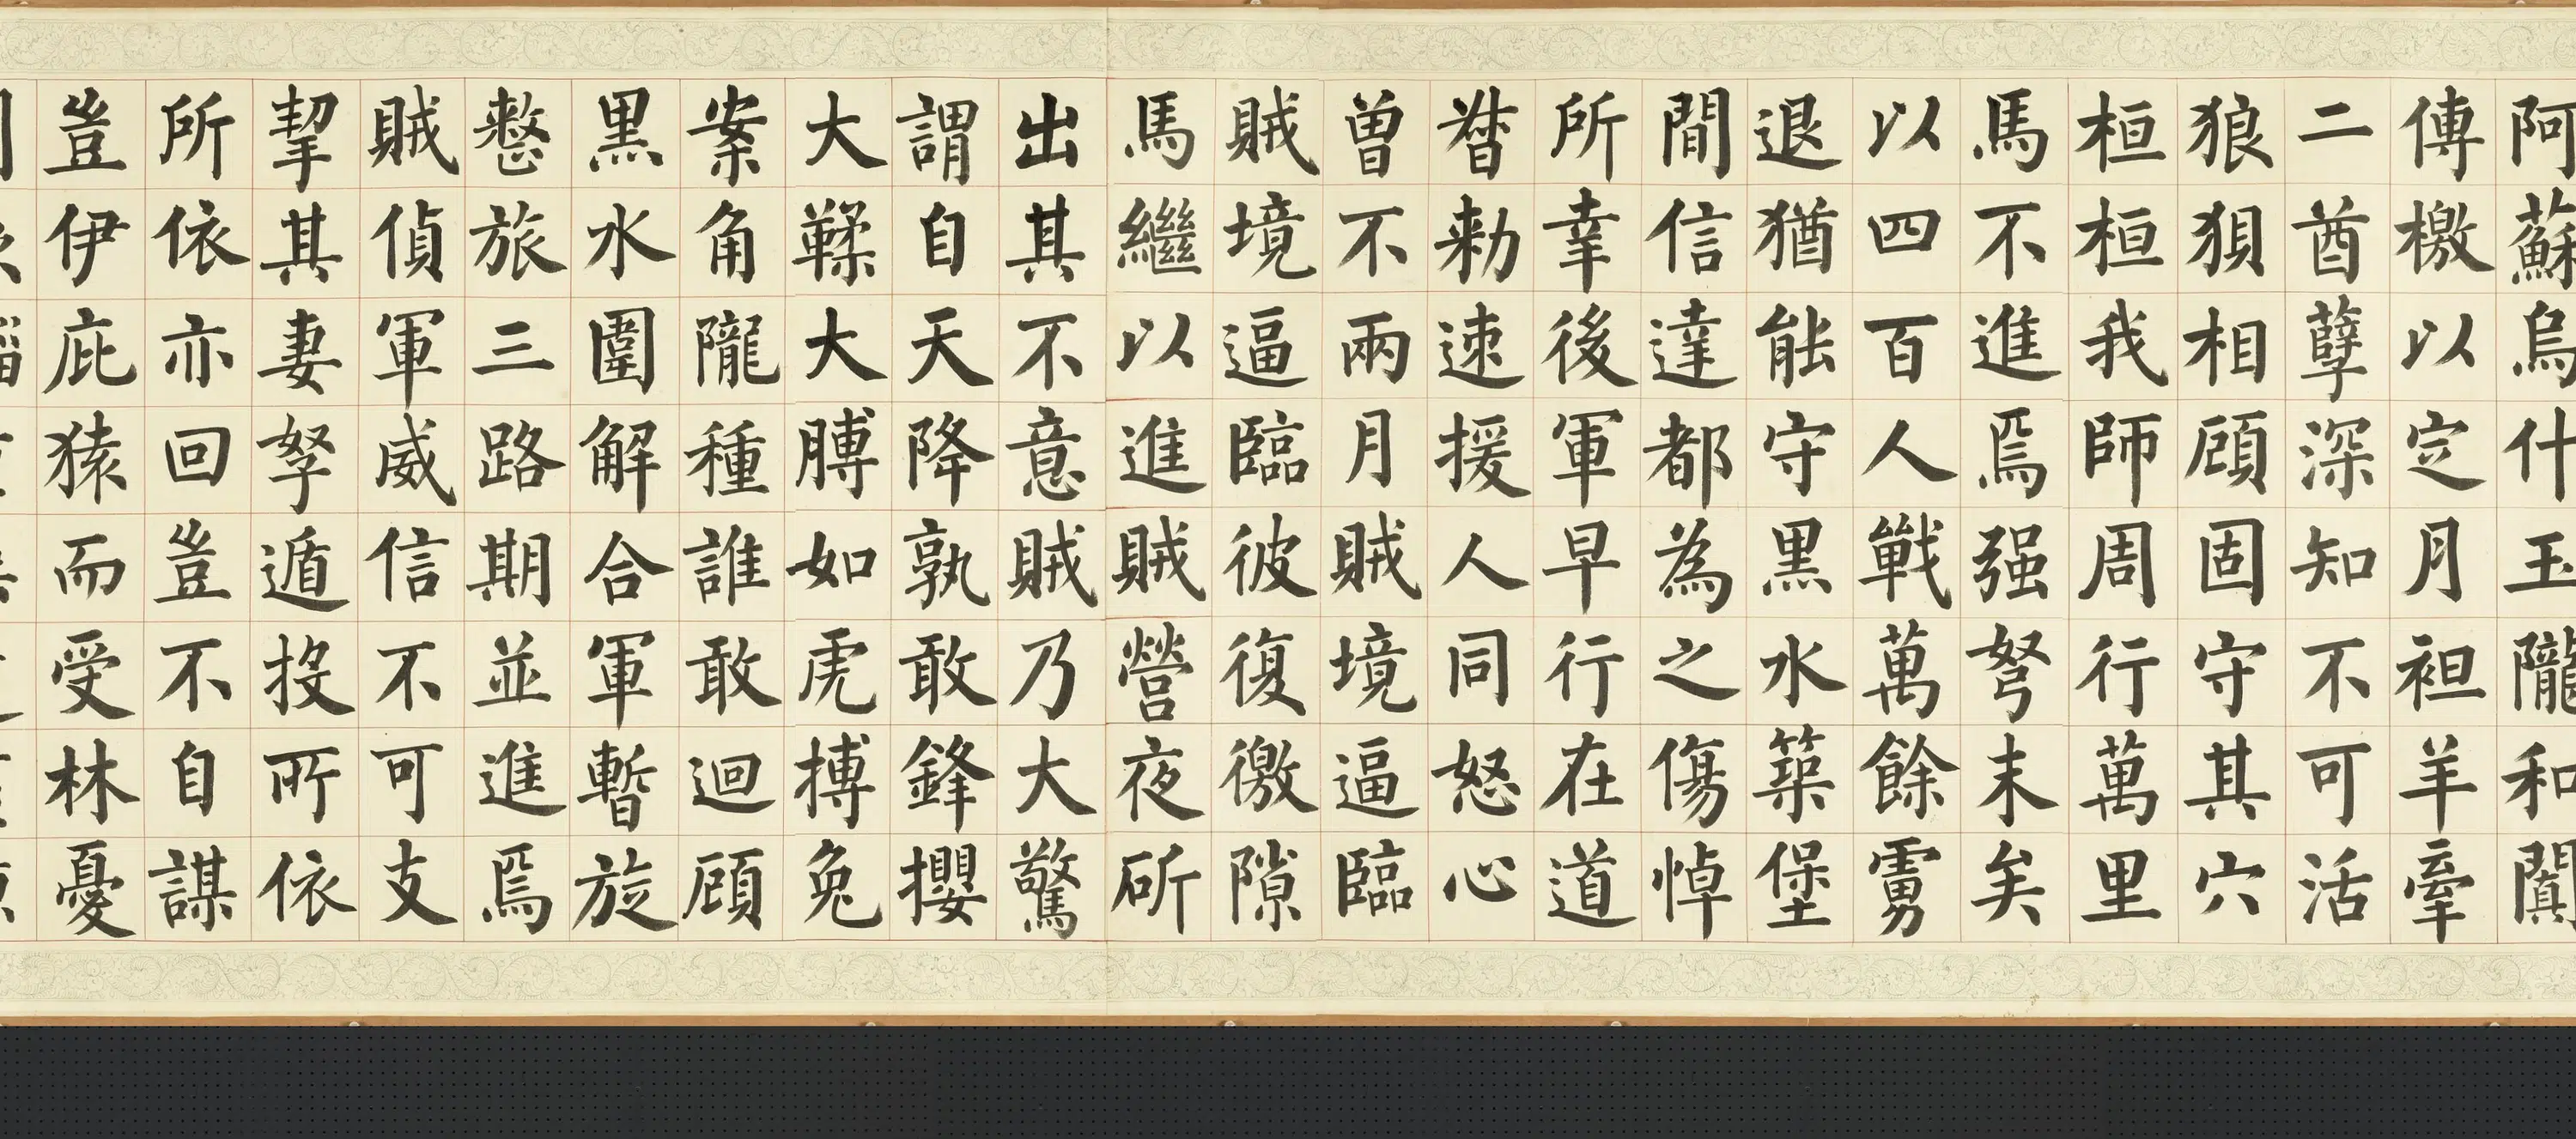 阿蘇烏什玉隴和闐
傳檄以定月袒羊牽
二酋孽深知不可活
狼狽相顧固守其穴
桓桓我師周行萬里
馬不進焉强弩末矣
以四百人戰萬餘虜
退猶能守黑水築堡
間信達都為之傷悼
所幸後軍早行在道
朁勑速援人同怒心
曾不兩月賊境逼臨
賊境逼臨彼復徼隙
馬繼以進賊營夜斫
出其不意賊乃大驚
謂自天降孰敢鋒攖
大鞣大膊如虎搏兔
案角隴種誰敢迴顧
黑水圍解合軍暫旋
憗旅三路期並進焉
賊偵軍威信不可支
挈其妻孥遁投所依
所依亦回豈不自謀
豈伊庇猿而受林憂